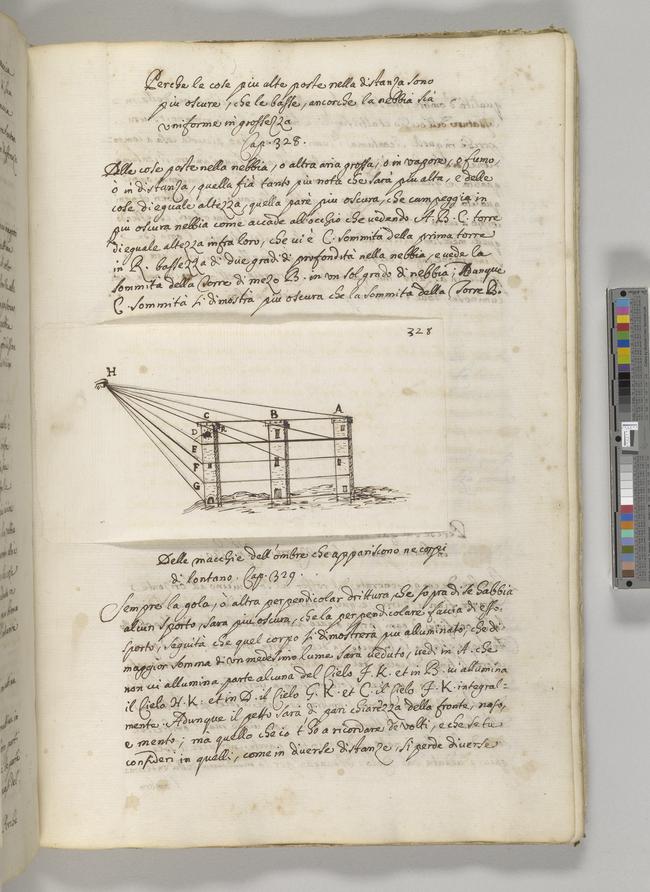 Perche le cose piu alte poste nella distanza sono
piu oscure, che le basse, ancorche la nebbia sia
uniforme in grossezza
Cap. 328.
Delle cose poste nella nebbia, o altra aria grossa, o in vapore, e fumo,
o in distanza, quella fia tanto piu nota che sarà piu alta, e delle
cose di equale altezza, quella pare piu oscura, che campeggia in
piu oscura nebbia come accade all'occhio che vedendo A. B. C. torre
di equale altezza infra loro, che vi è C. sommità della prima torre
in R. bassezza di due gradi di profondità nella nebbia, e vede la
sommità della Torre di mezo B. in un sol grado di nebbia; Dunque
C. sommità si dimostra piu oscura che la sommità della Torre B.
328
H
C B A
D R
E
F
G
Delle macchie dell'ombre che appariscono ne corpi
di lontano. Cap. 329.
Sempre la gola, o altra perpendicolar drittura, che sopra di se habbia
alcun sporto, sarà piu oscura, che la perpendicolare faccia di esso
sporto, seguita che quel corpo si dimostrerà piu alluminato, che di
maggior somma di un medesimo lume sarà veduto, vedi in A. che
non vi allumina parte alcuna del Cielo F. K. et in B. vi allumina
il Cielo H. K. et in D. il Cielo G. K. et C. il Cielo F. K. integral=
mente. Adunque il petto sarà di pari chiarezza della fronte, naso,
e mento; ma quello che io t'ho a ricordare de volti, e che se tu
consideri in quelli, come in diverse distanze, si perde diverse